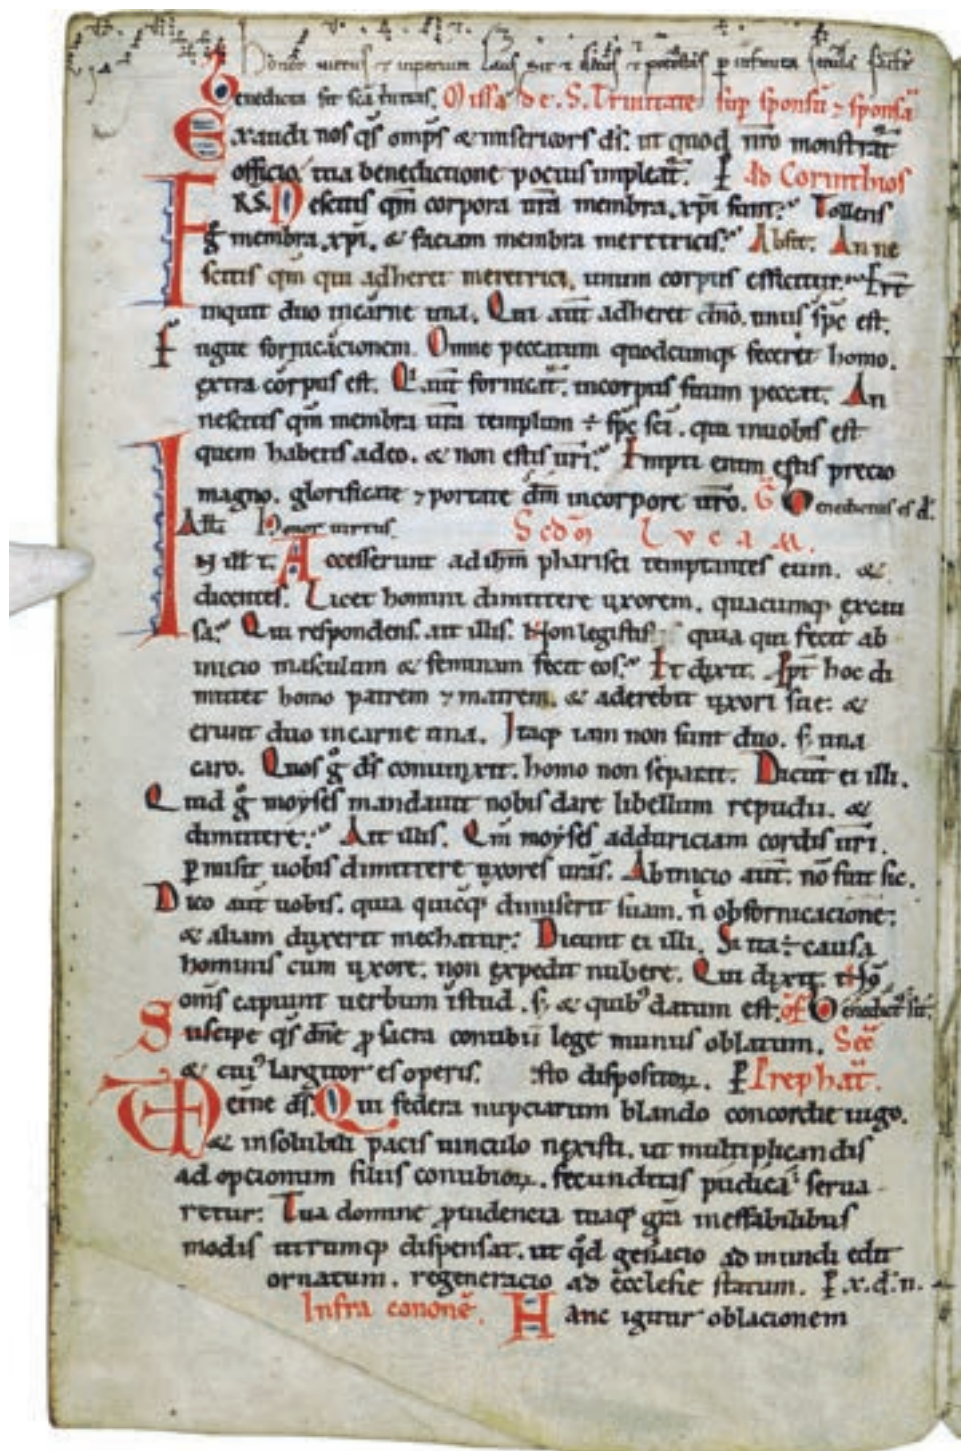 Honor uirtus ⁊ inperium laus sit ⁊ p infinita secula
Benedicta sit scā tnitas. Missa de. S. Trinitate sup sponsū ⁊ sponsā
Exaudi nos qs omps & misericors ds. ut quod nro monstrat̄
officio, tua benedictione pocius impleat̄. Ad Corinthios
FRS. Nescitis qm̄ corpora ura membra, xpi sunt. Tollens
g membra xpi, & faciam membra meretricis. Absit. An ne
scitis qm̄ qui adheret meretrici, unum corpus efficitur. Ert̄
inquit duo incarne una. Qui aut̄ adheret dnō, unus spc est.
fugite fornicacionem. Omne peccatum quodcumq; fecerit homo,
extra corpus est. Q aut̄ fornicat̄, incorpus suum peccat. An
nescitis qm̄ membra ura templum ÷ spc sci, qui inuobis est
quem habetis adeo, & non estis uri. Empti enim estis precio
magno, glorificate ⁊ portate dm̄ incorpore uro. G Benedictus es d.
Honor uirtus. Scdm Lucam.
IN illt. Accesserunt ad ihm̄ pharisei temptantes eum, &
dicentes. Licet homini dimittere uxorem, quacumq; excau
sa. Qui respondens, ait illis. Non legistis quia qui fecit ab
inicio masculum & feminam fecit eos. Et dixit. Ppt̄ hoc di
mittet homo patrem ⁊ matrem, & aderebit uxori sue: &
erunt duo incarne una. Itaq; iam non sunt duo, s; una
caro. Quos g ds coniunxit, homo non separet. Dicūt ei illi.
Quid g moyses mandauit nobis dare libellum repudii, &
dimittere. Ait illis. Qm̄ moyses adduriciam cordis uri,
pmisit uobis dimittere uxores uras. Abinicio aut̄, nō fuit sic.
Dico aut̄ uobis, quia quicq; dimiserit suam, n obfornicacione:
& aliam duxerit mechatur: Dicunt ei illi. Si ita ÷ causa
hominis cum uxore, non expedit nubere. Qui dixit. Nō
oms capiunt uerbum istud, s; & quib' datum est. of Benedict' sit.
Suscipe qs dne p sacra conubii lege munus oblatum. Sec̄
& cui' largitor es operis, esto dispositor. Prephat̄.
UD eterne ds. Qui federa nupciarum blando concordie iugo,
& insolubili pacis uinculo nexisti, ut multiplicandis
adopcionum filiis conubior, fecunditas pudica serua
retur: Tua domine puidencia tuaq; gra ineffabilibus
modis utrumq; dispensat, ut qd genacio ad mundi edit
ornatum, regeneracio ad ecclesie statum. P. x. d. n.
Infra cononē. Hanc igitur oblacionem